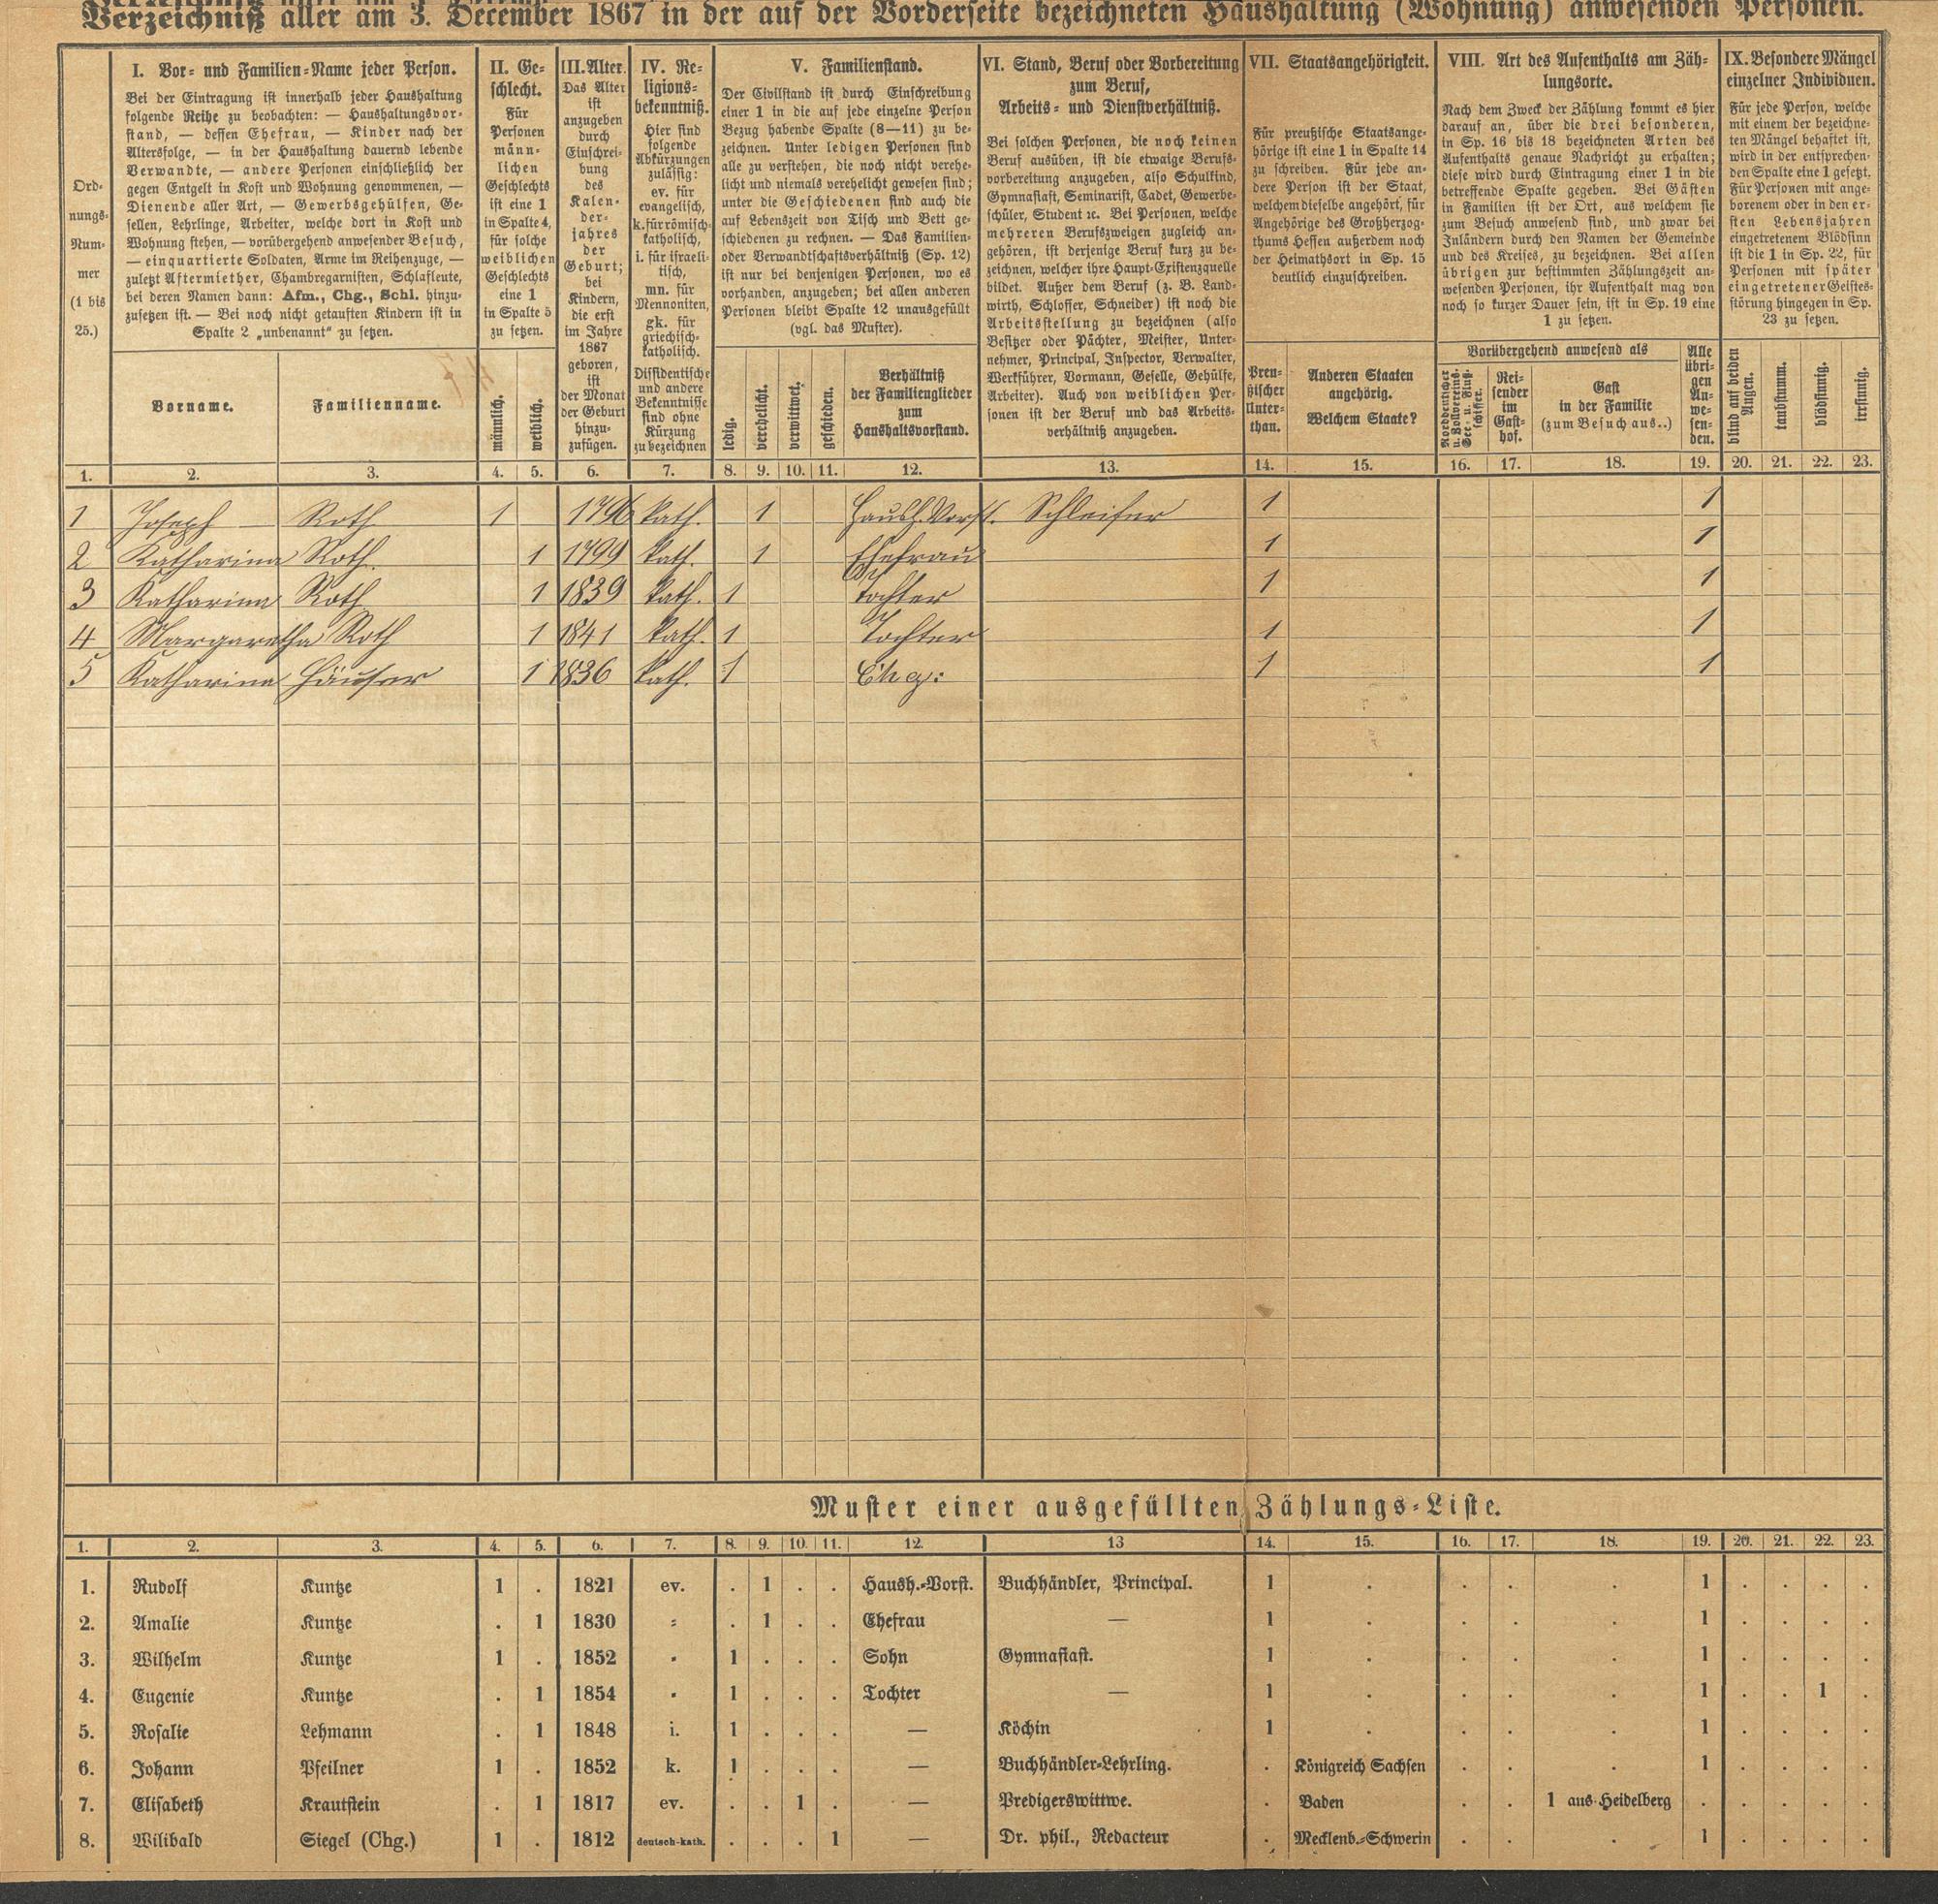 Verzeichniß aller am 3. December 1867 in der auf der Vorderseite bezeichneten Haushaltung (Wohnung) anwesenden Personen.
Ord-
nungs-
Num-
mer
(1 bis
25.)
I. Vor- und Familien-Name jeder Person.
Bei der Eintragung ist innerhalb jeder Haushaltung
folgende Reihe zu beobachten: — Haushaltungsvor-
stand, — dessen Ehefrau, — Kinder nach der
Altersfolge, — in der Haushaltung dauernd lebende
Verwandte, — andere Personen einschließlich der
gegen Entgelt in Kost und Wohnung genommenen, —
Dienende aller Art, — Gewerbsgehülfen, Ge-
sellen, Lehrlinge, Arbeiter, welche dort in Kost und
Wohnung stehen, — vorübergehend anwesender Besuch,
— einquartierte Soldaten, Arme im Reihenzuge, —
zuletzt Aftermiether, Chambregarnisten, Schlafleute,
bei deren Namen dann: Afm., Chg., Schl. hinzu-
zusetzen ist. — Bei noch nicht getauften Kindern ist in
Spalte 2 „unbenannt" zu setzen.
Vorname.
Familienname.
II. Ge-
schlecht.
Für
Personen
männ-
lichen
Geschlechts
ist eine 1
in Spalte 4,
für solche
weiblichen
Geschlechts
eine 1
in Spalte 5
zu setzen.
männlich.
weiblich.
III. Alter.
Das Alter
ist
anzugeben
durch
Einschrei-
bung
des
Kalen-
der-
jahres
der
Geburt;
bei
Kindern,
die erst
im Jahre
1867
geboren,
ist
der Monat
der Geburt
hinzu-
zufügen.
IV. Re-
ligions-
bekenntniß.
Hier sind
folgende
Abkürzungen
zulässig:
ev. für
evangelisch,
k. für römisch-
katholisch,
i. für israeli-
tisch,
mn. für
Mennoniten,
gk. für
griechisch-
katholisch.
Dissidentische
und andere
Bekenntnisse
sind ohne
Kürzung
zu bezeichnen
V. Familienstand.
Der Civilstand ist durch Einschreibung
einer 1 in die auf jede einzelne Person
Bezug habende Spalte (8—11) zu be-
zeichnen. Unter ledigen Personen sind
alle zu verstehen, die noch nicht verehe-
licht und niemals verehelicht gewesen sind;
unter die Geschiedenen sind auch die
auf Lebenszeit von Tisch und Bett ge-
schiedenen zu rechnen. — Das Familien-
oder Verwandtschaftsverhältniß (Sp. 12)
ist nur bei denjenigen Personen, wo es
vorhanden, anzugeben; bei allen anderen
Personen bleibt Spalte 12 unausgefüllt
(vgl. das Muster).
ledig.
verehelicht.
verwittwet.
geschieden.
Verhältniß
der Familienglieder
zum
Haushaltsvorstand.
VI. Stand, Beruf oder Vorbereitung
zum Beruf,
Arbeits- und Dienstverhältniß.
Bei solchen Personen, die noch keinen
Beruf ausüben, ist die etwaige Berufs-
vorbereitung anzugeben, also Schulkind,
Gymnasiast, Seminarist, Cadet, Gewerbe-
schüler, Student ꝛc. Bei Personen, welche
mehreren Berufszweigen zugleich an-
gehören, ist derjenige Beruf kurz zu be-
zeichnen, welcher ihre Haupt-Existenzquelle
bildet. Außer dem Beruf (z. B. Land-
wirth, Schlosser, Schneider) ist noch die
Arbeitsstellung zu bezeichnen (also
Besitzer oder Pächter, Meister, Unter-
nehmer, Principal, Inspector, Verwalter,
Werkführer, Vormann, Geselle, Gehülfe,
Arbeiter). Auch von weiblichen Per-
sonen ist der Beruf und das Arbeits-
verhältniß anzugeben.
VII. Staatsangehörigkeit.
Für preußische Staatsange-
hörige ist eine 1 in Spalte 14
zu schreiben. Für jede an-
dere Person ist der Staat,
welchem dieselbe angehört, für
Angehörige des Großherzog-
thums Hessen außerdem noch
der Heimathsort in Sp. 15
deutlich einzuschreiben.
Preu-
ßischer
Unter-
than.
Anderen Staaten
angehörig.
Welchem Staate?
VIII. Art des Aufenthalts am Zäh-
lungsorte.
Nach dem Zweck der Zählung kommt es hier
darauf an, über die drei besonderen,
in Sp. 16 bis 18 bezeichneten Arten des
Aufenthalts genaue Nachricht zu erhalten;
diese wird durch Eintragung einer 1 in die
betreffende Spalte gegeben. Bei Gästen
in Familien ist der Ort, aus welchem sie
zum Besuch anwesend sind, und zwar bei
Inländern durch den Namen der Gemeinde
und des Kreises, zu bezeichnen. Bei allen
übrigen zur bestimmten Zählungszeit an-
wesenden Personen, ihr Aufenthalt mag von
noch so kurzer Dauer sein, ist in Sp. 19 eine
1 zu setzen.
Vorübergehend anwesend als
Norddeutscher
u. Zollvereins-
See- u. Fluß-
schiffer.
Rei-
sender
im
Gast-
hof.
Gast
in der Familie
(zum Besuch aus..)
Alle
übri-
gen
An-
we-
sen-
den.
IX. Besondere Mängel
einzelner Individuen.
Für jede Person, welche
mit einem der bezeichne-
ten Mängel behaftet ist,
wird in der entsprechen-
den Spalte eine 1 gesetzt.
Für Personen mit ange-
borenem oder in den er-
sten Lebensjahren
eingetretenem Blödsinn
ist die 1 in Sp. 22, für
Personen mit später
eingetretener Geistes-
störung hingegen in Sp.
23 zu setzen.
blind auf beiden
Augen.
taubstumm.
blödsinnig.
irrsinnig.
1. 2. 3. 4. 5. 6. 7. 8. 9. 10. 11. 12. 13. 14. 15. 16. 17. 18. 19. 20. 21. 22. 23.
1 Joseph Roth 1 1796 kath. 1 Haush. Vorst. Schleifer 1 1
2 Katharina Roth. 1 1799 kath. 1 Ehefrau 1 1
3 Katharina Roth 1 1839 kath. 1 Tochter 1 1
4 Margaretha Roth 1 1841 kath. 1 Tochter 1 1
5 Katharina Häuser 1 1836 kath. 1 1 1
Muster einer ausgefüllten Zählungs-Liste.
1. 2. 3. 4. 5. 6. 7. 8. 9. 10. 11. 12. 13 14. 15. 16. 17. 18. 19. 20. 21. 22. 23.
1. Rudolf Kuntze 1 . 1821 ev. . 1 . . Haush.-Vorst. Buchhändler, Principal. 1 . . . . 1 . . . .
2. Amalie Kuntze . 1 1830 = . 1 . . Ehefrau — 1 . . . . 1 . . . .
3. Wilhelm Kuntze 1 . 1852 " 1 . . . Sohn Gymnasiast. 1 . . . . 1 . . . .
4. Eugenie Kuntze . 1 1854 " 1 . . . Tochter — 1 . . . . 1 . . 1 .
5. Rosalie Lehmann . 1 1848 i. 1 . . . — Köchin 1 . . . . 1 . . . .
6. Johann Pfeilner 1 . 1852 k. 1 . . . — Buchhändler-Lehrling. . Königreich Sachsen . . . 1 . . . .
7. Elisabeth Krautstein . 1 1817 ev. . . 1 . — Predigerswittwe. . Baden . . 1 aus Heidelberg . . . . .
8. Wilibald Siegel (Chg.) 1 . 1812 deutsch-kath. . . . 1 — Dr. phil., Redacteur . Mecklenb.-Schwerin . . . 1 . . . .